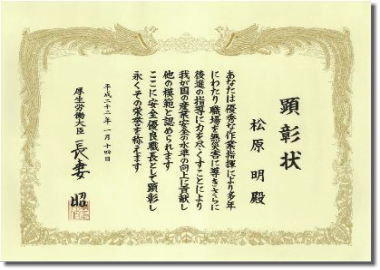 顕彰状
松原 明殿
あなたは優秀な作業指揮により多年
にわたり職場を無災害に導きさらに
後進の指導に力を尽くすことにより
我が国の産業安全の水準の向上に貢献し
他の模範と認められます
ここに安全優良職長として顕彰し
永くその栄誉を称えます
平成二十二年一月十四日
厚生労働大臣 長妻 昭